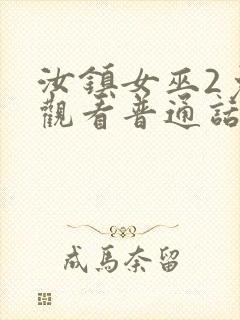 汝鎮女巫2
觀看普通話
成馬奈留